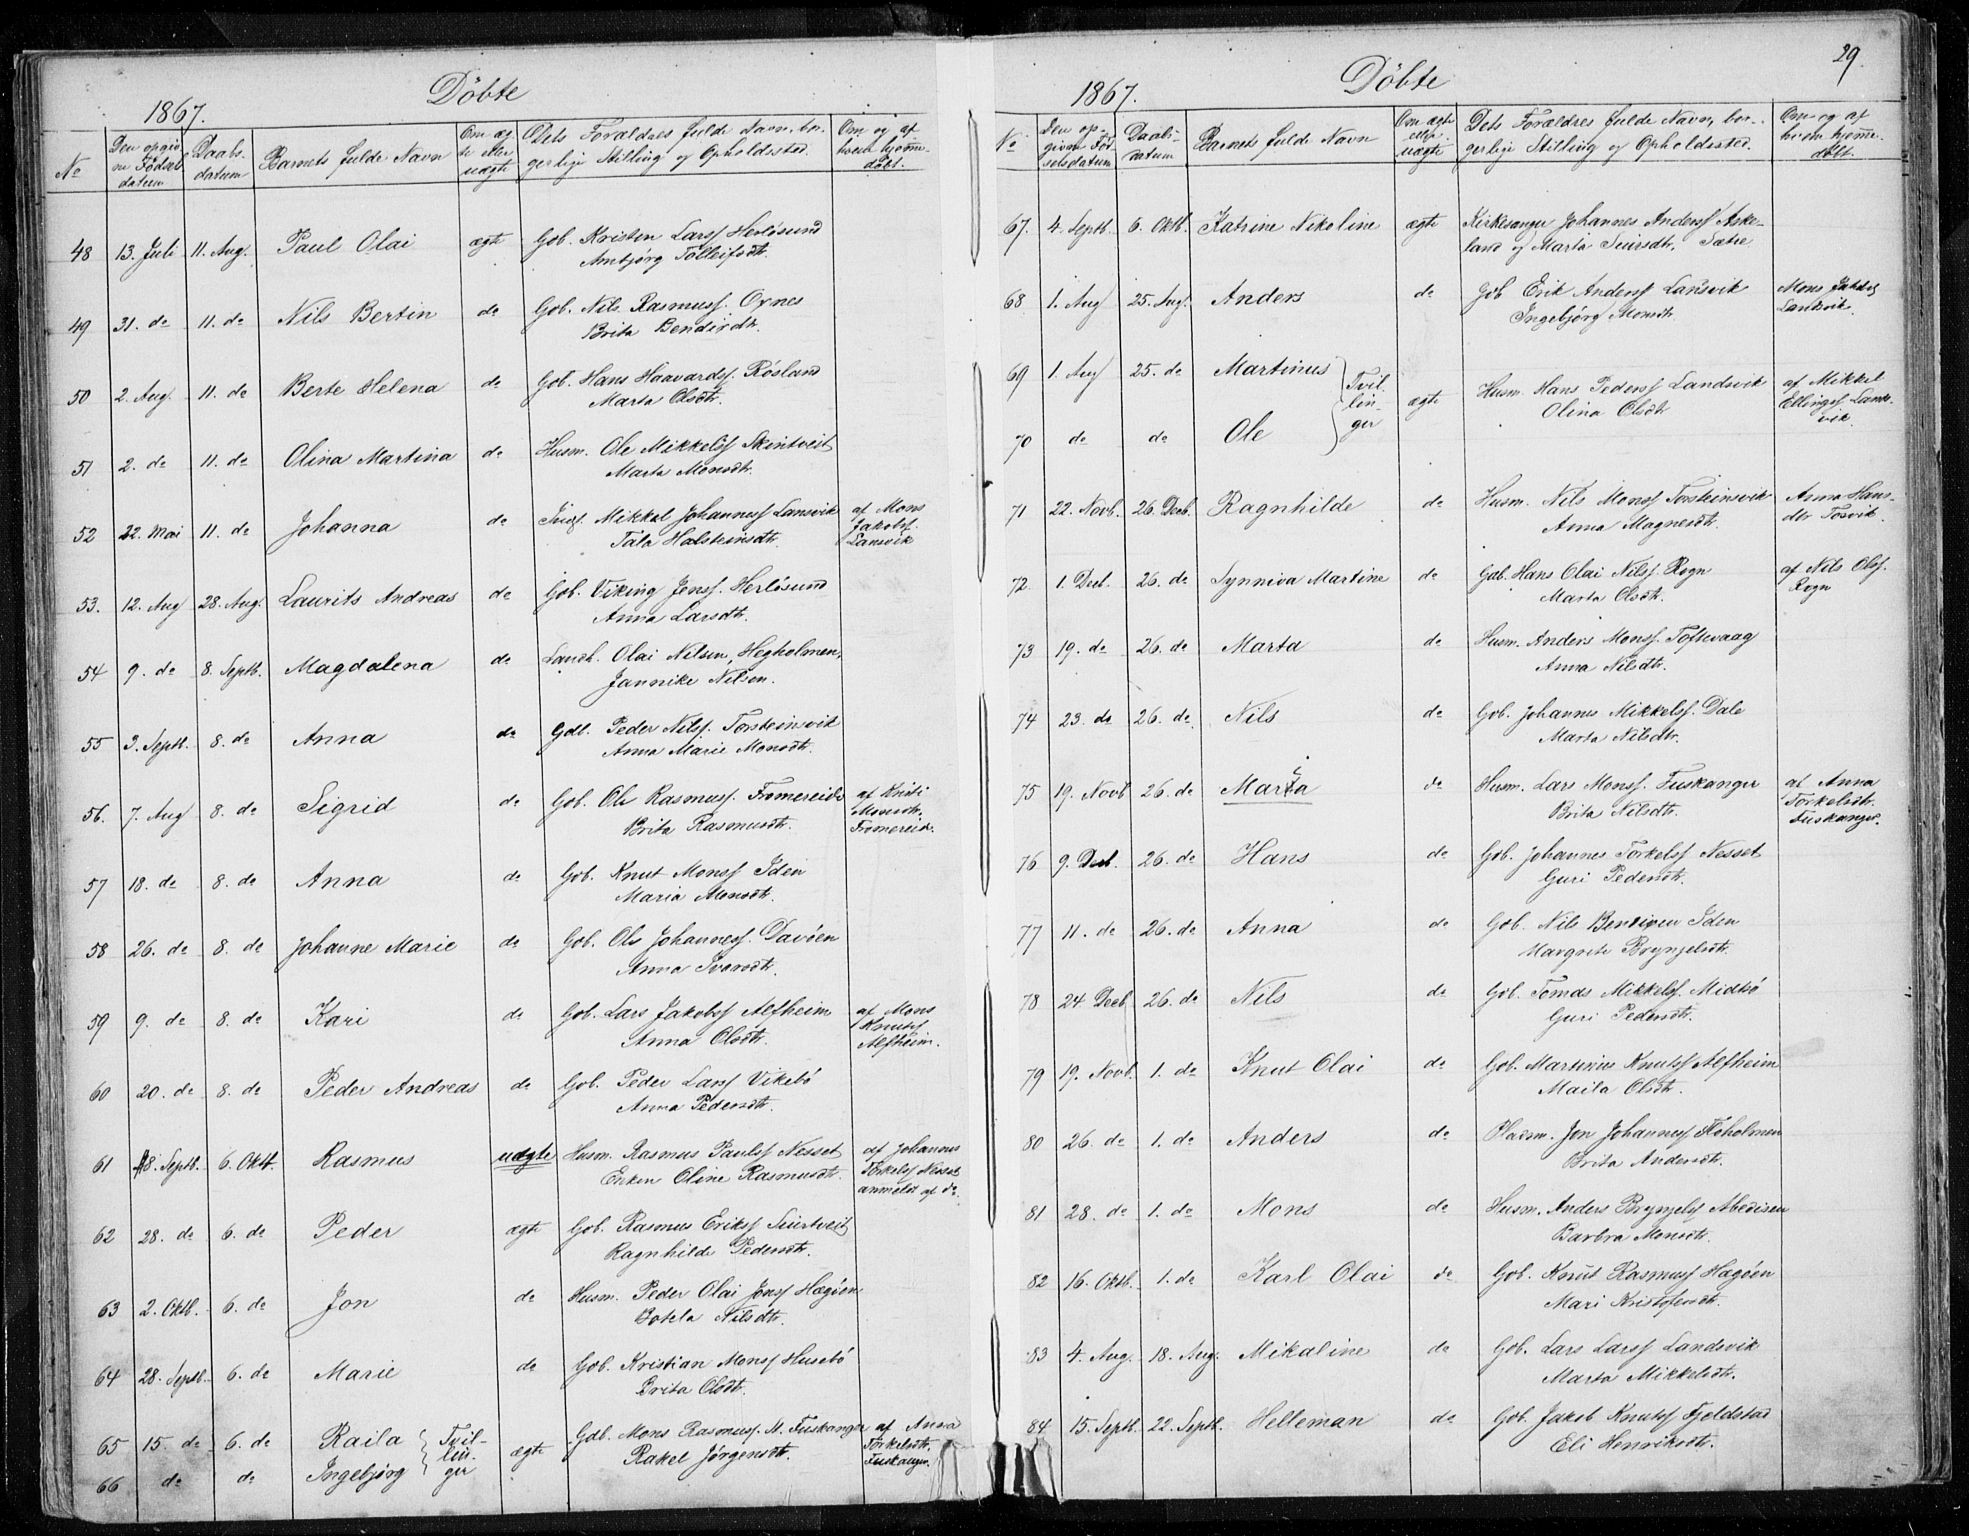 Döbte
1867.
No
Den opgiv
ne Födsels
datum
Daabs-
datum
Barnets fulde Navn
Om æg
te eller
uægte
Dets Forældres fulde Navn, bor-
gerlige Stilling og Opholdssted.
Om og af
hvem hjemme-
döbt.
48 13. Juli 11. Aug. Paul Olai ægte Gob. Kristen Larss Herlösund
Ambjørg Tolleifsdtr.
49 31. do 11. do Nils Bertin do Gob. Nils Rasmuss. Ornes
Brita Bendixdtr.
50 2. Aug. 11. do Berte Helena do Gob. Hans Haavards. Rösland
Marta Olsdtr.
51 2. do 11. do Olina Martina do Husm. Ole Mikkelss Skintveit
Marta Monsdtr.
52 22. Mai 11. do Johanna do Mikkel Johanness Lansvik af Mons
Tala Halsteinsdtr. Jakobss.
Lansvik
53. 12. Aug 28. Aug. Laurits Andreas do Gob. Viking Jenss. Herlösund
Anna Larsdtr.
54 9. do 8. Septb. Magdalena do Landh. Olai Nilsen, Hegholmen,
Jannike Nilsen.
55 3. Septb. 8. do Anna do Gdb. Peder Nilss. Torsteinsvik
Anna Marie Monsdtr.
56. 7. Aug 8. do Sigrid do Gob. Ole Rasmuss. Fromereide af Kristi
Brita Rasmusdtr. Monsdtr.
Fromereid.
57 18. do 8. do Anna do Gob. Knut Monss Iden
Maria Monsdtr.
58 26. do 8. do Johanne Marie do Gob. Ole Johanness. Davöen
Anna Ivarsdtr.
59 9. do 8. do Kari do Gob. Lars Jakobss Alfheim af Mons
Anna Olsdtr. Knutss
Alfheim.
60 20. do 8. do Peder Andreas do Gob. Peder Larss Vikebö
Anna Pedersdtr.
61 18. Septb. 6. Oktb. Rasmus uægte Husm. Rasmus Paulss Nesset af Johannes
Enken Oline Rasmusdtr. Torkelss Nesset
anmeldt af do
62 28. do 6. do Peder ægte Gob. Rasmus Erikss Seiertveit
Ragnhilde Pedersdtr.
63 2. Oktb. 6. do Jon do Husm. Peder Olai Jonss Hægöen
Botela Nilsdtr.
64 28. Septb. 6. do Marie do Gob. Kristian Monss Husebö
Brita Olsdtr.
65 15. do 6. do Raila Tvil-
lin-
ger ægte Gdb. Mons Rasmuss. M. Fuskanger af Anna
66 do do Ingebjørg Rakel Jörgensdtr. Torkelsdtr.
Fuskanger.
29.
Döbte
1867.
No
Den op-
givne Föd
selsdatum
Daabs-
datum
Barnets fulde Navn
Om ægte
eller
uægte
Dets Forældres fulde Navn, bor-
gerlige Stilling og Opholdssted.
Om og af
hvem hjemme-
döbt.
67. 4. Septb. 6. Oktb. Katrine Nikoline ægte Kirkesanger Johannes Anderss Aske-
land og Marta Sjursdtr. Sætre
68 1. Aug 25. Aug. Anders do Gob Erik Anderss Landsvik Mons Jakobss
Ingebjörg Monsdtr. Landsvik.
69 1. Aug 25. do Martinus Tvil
lin-
ger ægte Husm. Hans Pederss Landsvik af Mikkel
Olina Olsdtr Ellingss Lands-
vik.
70 do do Ole
71 22. Novb. 26. Decb. Ragnhilde do Husm. Nils Monss Torsteinsvik Anna Hans-
Anna Magnesdtr. dtr Tosvik.
72. 1. Decb. 26. do Synniva Martine do Gob. Hans Olai Nilss. Rogn af Nils Olss.
Marta Olsdtr. Rogn
73 19. do 26. do Marta do Husm. Anders Monss. Toftevaag
Anna Nilsdtr.
74 23. do 26. do Nils do Gob. Johannes Mikkelss. Dale
Marta Nilsdtr.
75 19. Novb 26. do Marta do Husm. Lars Monss. Fuskanger af Anna
Brita Nilsdtr. Torkelsdtr.
Fuskanger.
76 9. Decb. 26. do Hans do Gob. Johannes Torkelss Nesset
Guri Pedersdtr.
77 11. do 26. do Anna do Gob. Nils Bendixen Iden
Margrete Brynjelsdtr.
78 24 Decb. 26. do Nils do Gob. Tomas Mikkelss. Midtbö
Guri Pedersdtr.
79 19. Novb. 1. do Knut Olai do Gob. Martinius Knutss Alfheim
Maila Olsdtr.
80 26. do 1. do Anders do Jon Johanness Flöholmen
Brita Andersdtr.
81 28. do 1. do Mons do Husm. Anders Brynjelss
Barbra Monsdtr.
82 16. Oktb. 1. do Karl Olai do Gob. Knut Rasmuss Hægöen
Mari Kristofersdtr.
83 4. Aug. 18. Aug. Mikaline do Gob. Lars Larss Landsvik
Marta Mikkelsdtr.
84 15. Septb. 22. Septb. Helleman do Gob. Jakob Knutss Fjeldstad
Eli Henriksdtr.